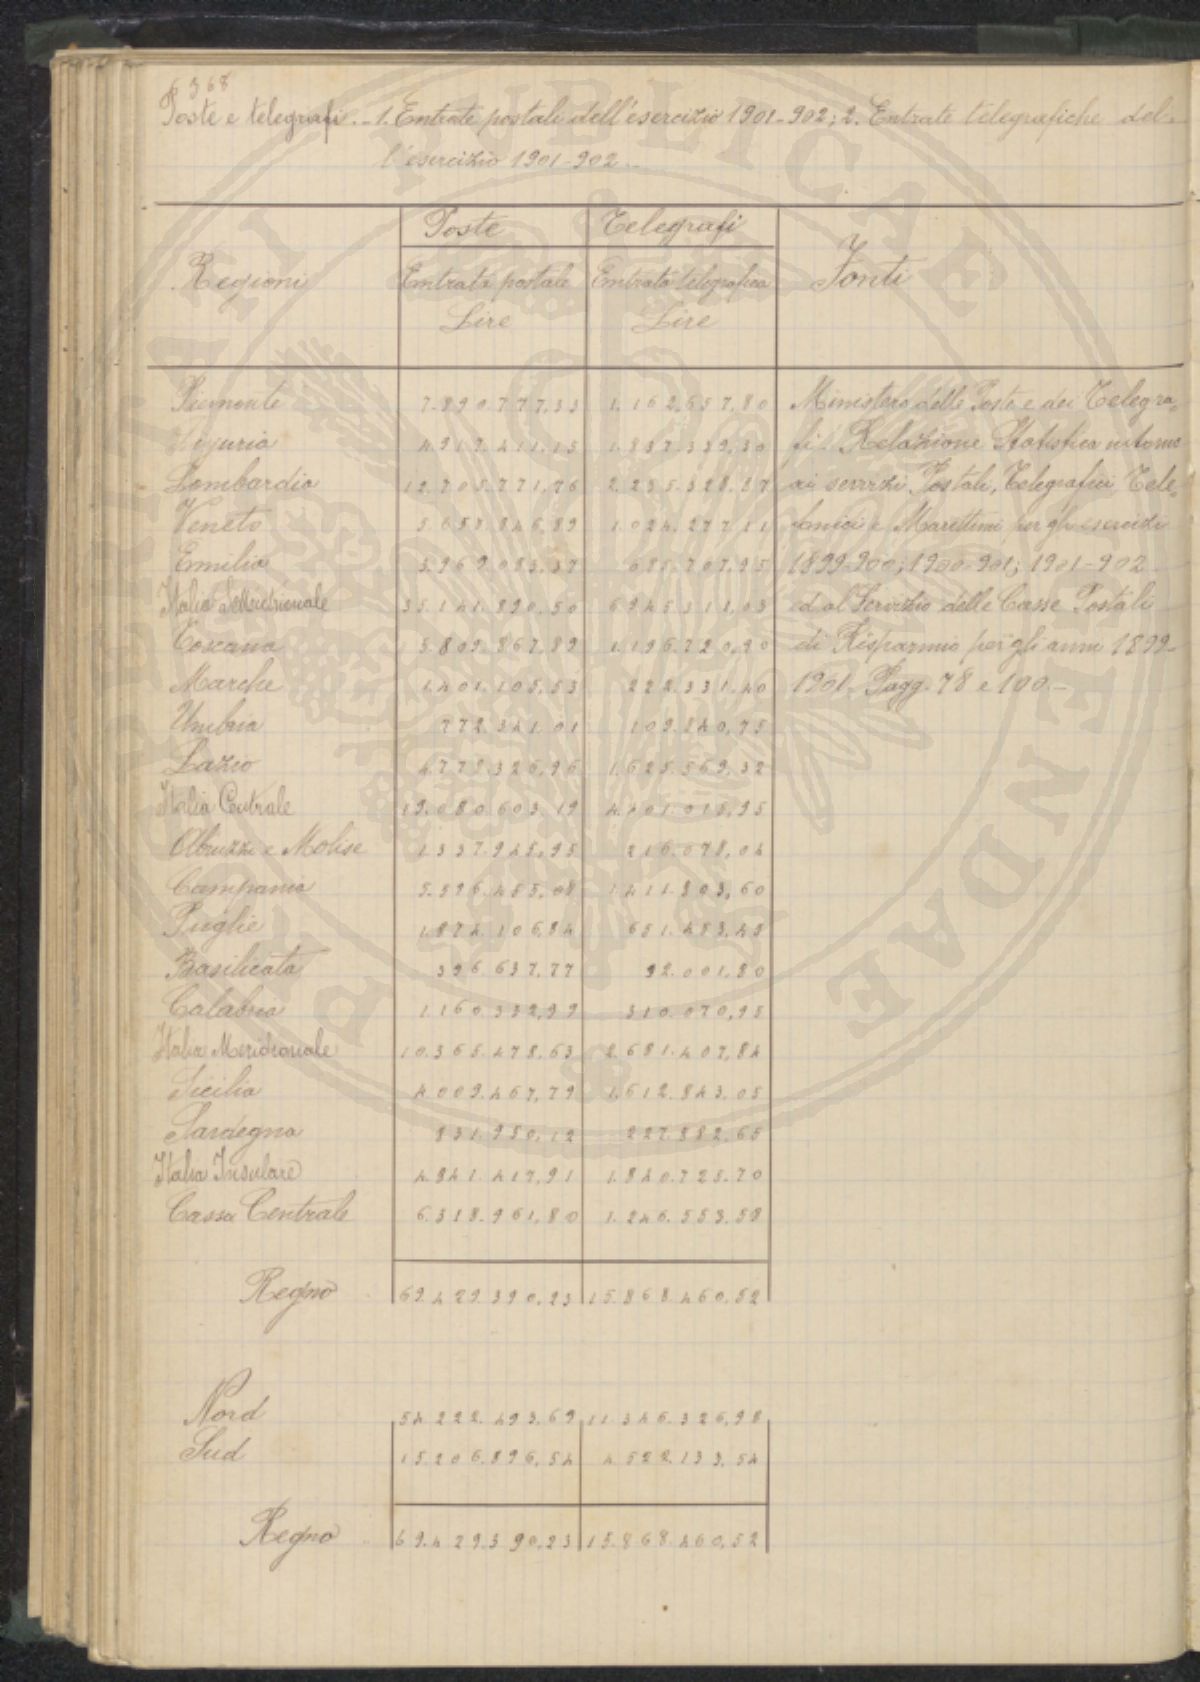 368
Poste e telegrafi. - 1. Entrate postali dell'esercizio 1901-902; 2. Entrate telegrafiche del-
l'esercizio 1901-902.
Regioni Poste Telegrafi Fonti
Entrata postale Entrata telegrafica
Lire Lire
Piemonte 7.890.777,33 1.162.657,80 Ministero delle Poste e dei Telegra-
Liguria 4.917.411,15 1.837.339,30 fi. Relazione Statistica intorno
Lombardia 12.705.771,76 2.235.328,87 ai servizi Postali, Telegrafici Tele-
Veneto 5.658.846,89 1.024.277,11 fonici e Marittimi per gli esercizi
Emilia 3.969.083,37 685.707,95 1899-900; 1900-901; 1901-902
Italia Settentrionale 35.141.890,50 6.945.311,03 ed al Servizio delle Casse Postali
Toscana 5.809.867,89 1.196.720,90 di Risparmio per gli anni 1899-
Marche 1.401.105,53 222.331,40 1901. Pagg. 78 e 100.-
Umbria 772.341,01 109.840,75
Lazio 4.778.326,96 1.625.569,32
Italia Centrale 19.080.603,19 4.401.015,95
Abruzzi e Molise 1.337.945,95 216.078,04
Campania 5.596.455,08 1.411.803,60
Puglie 1.874.106,84 651.453,45
Basilicata 396.637,77 92.001,80
Calabria 1.160.332,99 310.070,95
Italia Meridionale 10.365.478,63 2.681.407,84
Sicilia 4.009.467,79 1.612.843,05
Sardegna 831.950,12 227.882,65
Italia Insulare 4.841.417,91 1.840.725,70
Cassa Centrale 6.318.961,80 1.246.553,58
Regno 69.429.390,23 15.868.460,52
Nord 54.222.493,69 11.346.326,98
Sud 15.206.896,54 4.522.133,54
Regno 69.429.390,23 15.868.460,52